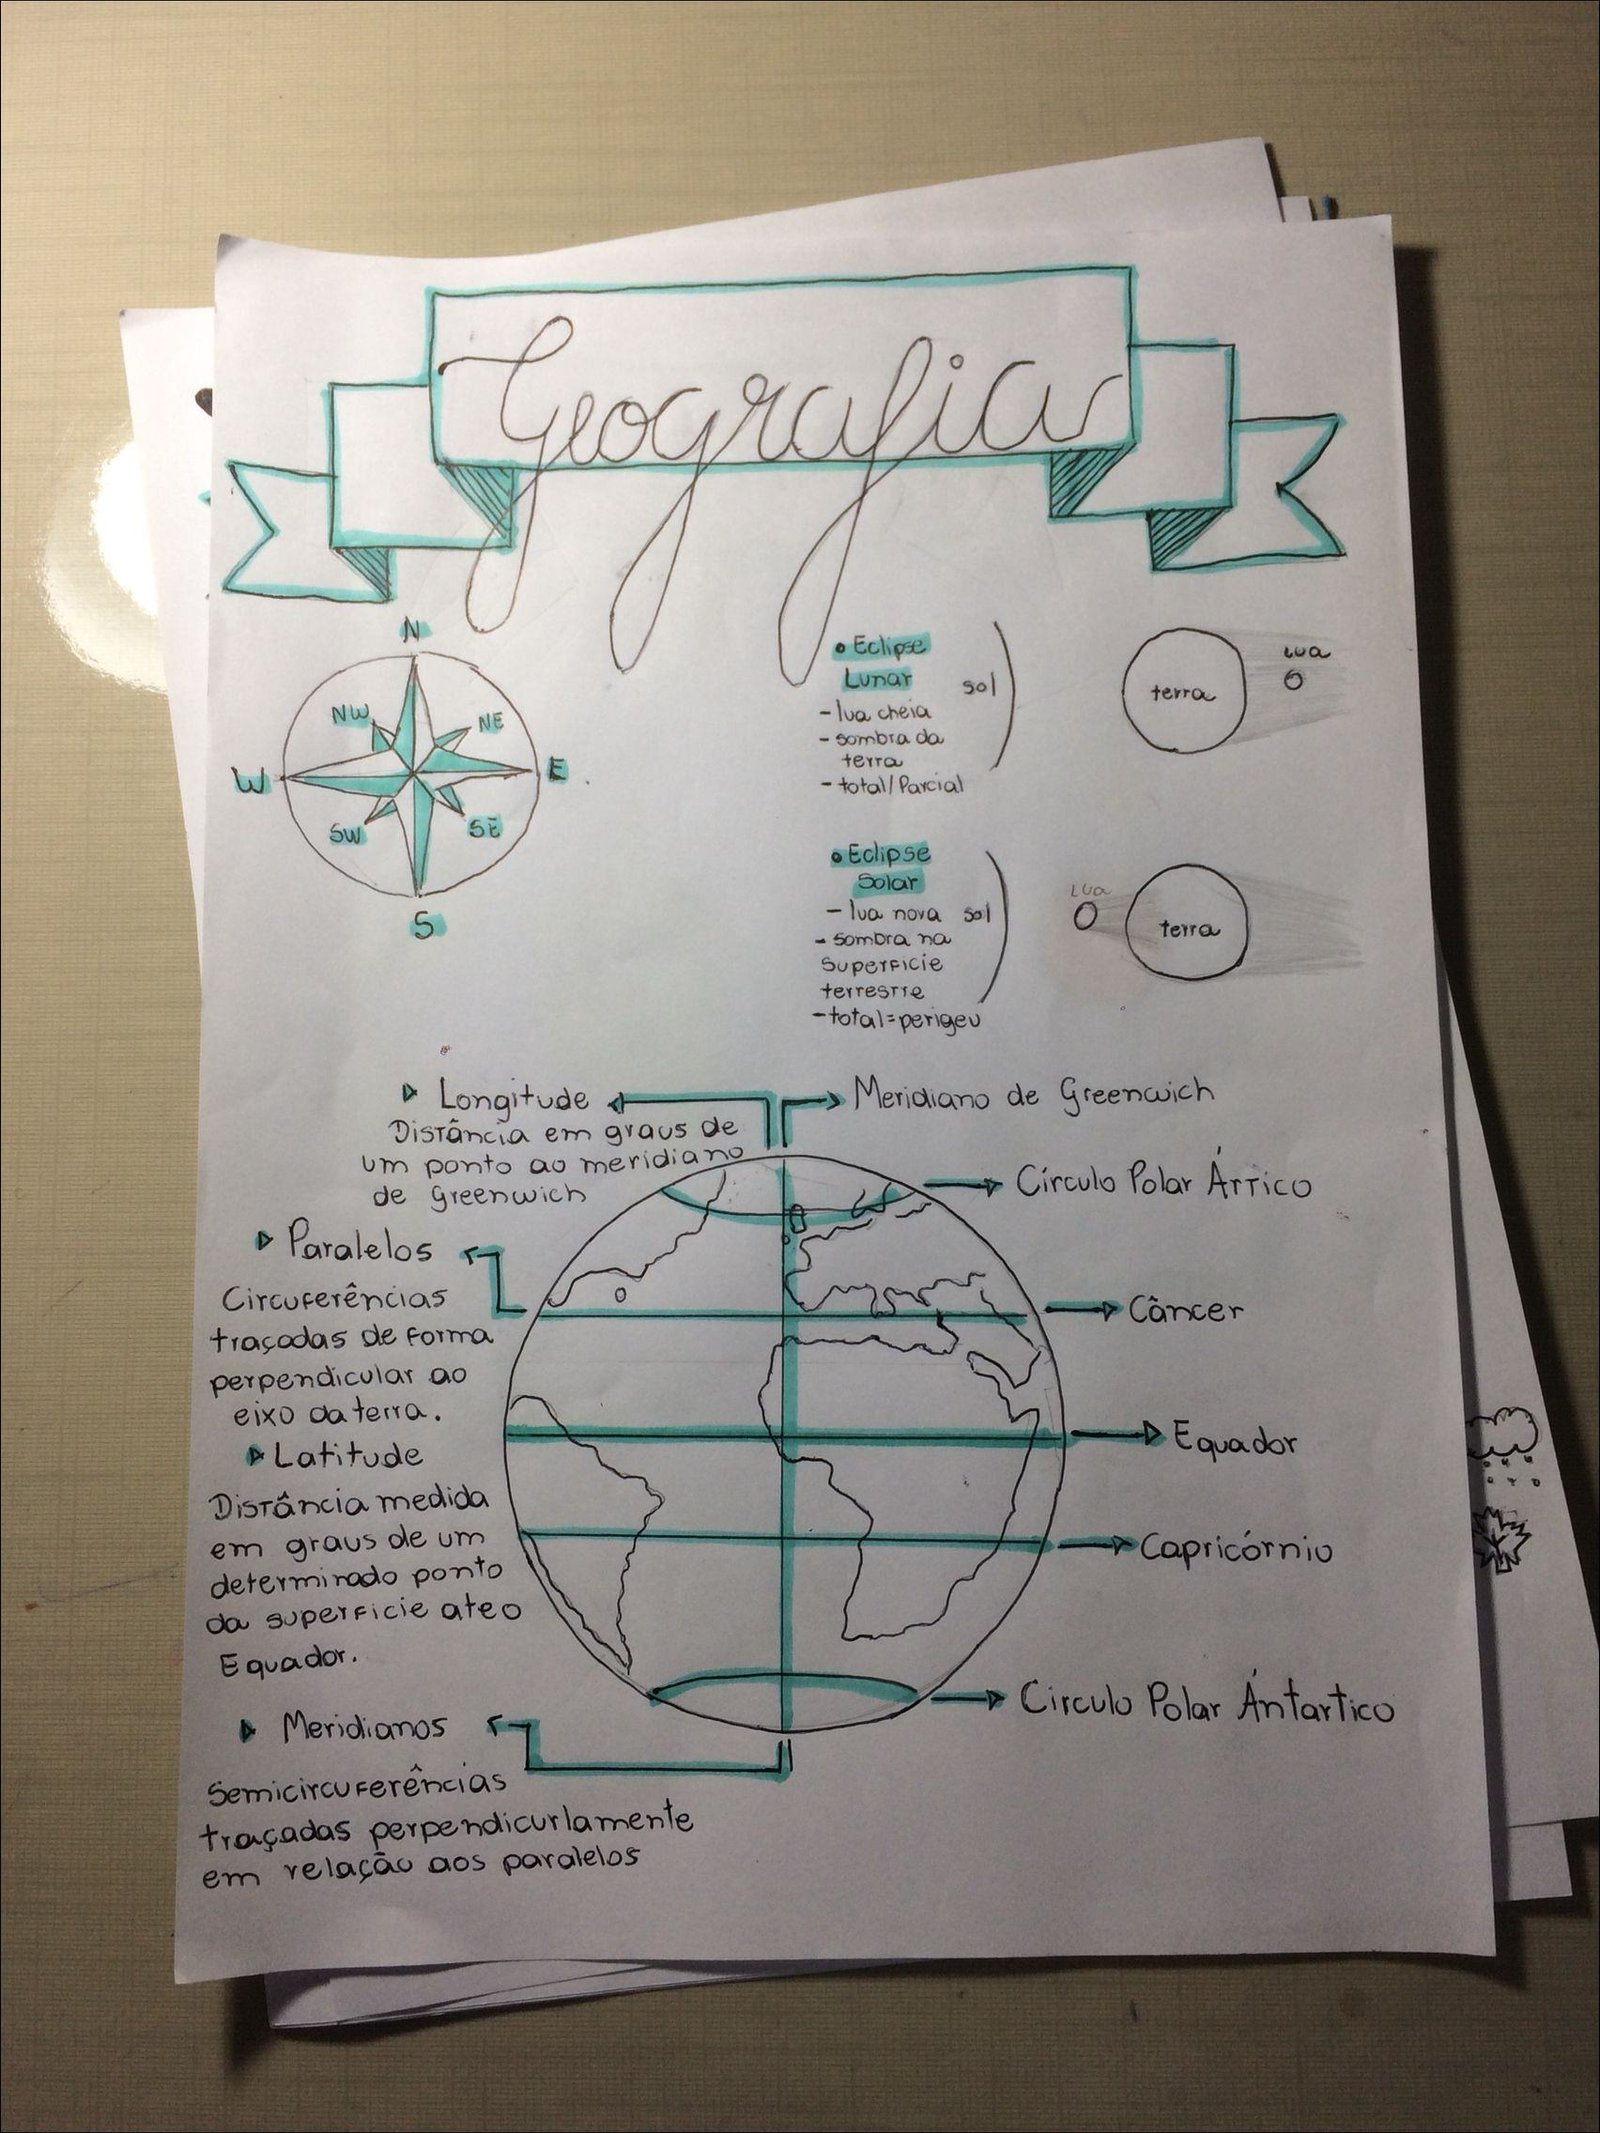 Geografia
N
NW
NE
W
E
SW
SE
S
• Eclipse
Lunar
- lua cheia
- sombra da
terra
- total/Parcial
sol
terra
lua
• Eclipse
Solar
- lua nova
- sombra na
superficie
terrestre
- total=perigeu
sol
lua
terra
Longitude
Distância em graus de
um ponto ao meridiano
de Greenwich
Meridiano de Greenwich
Círculo Polar Ártico
Paralelos
Circuferências
traçadas de forma
perpendicular ao
eixo da terra.
Câncer
Equador
Latitude
Distância medida
em graus de um
determinado ponto
da superficie ate o
Equador.
Capricórnio
Círculo Polar Ántartico
Meridianos
Semicircuferências
traçadas perpendicurlamente
em relação aos paralelos